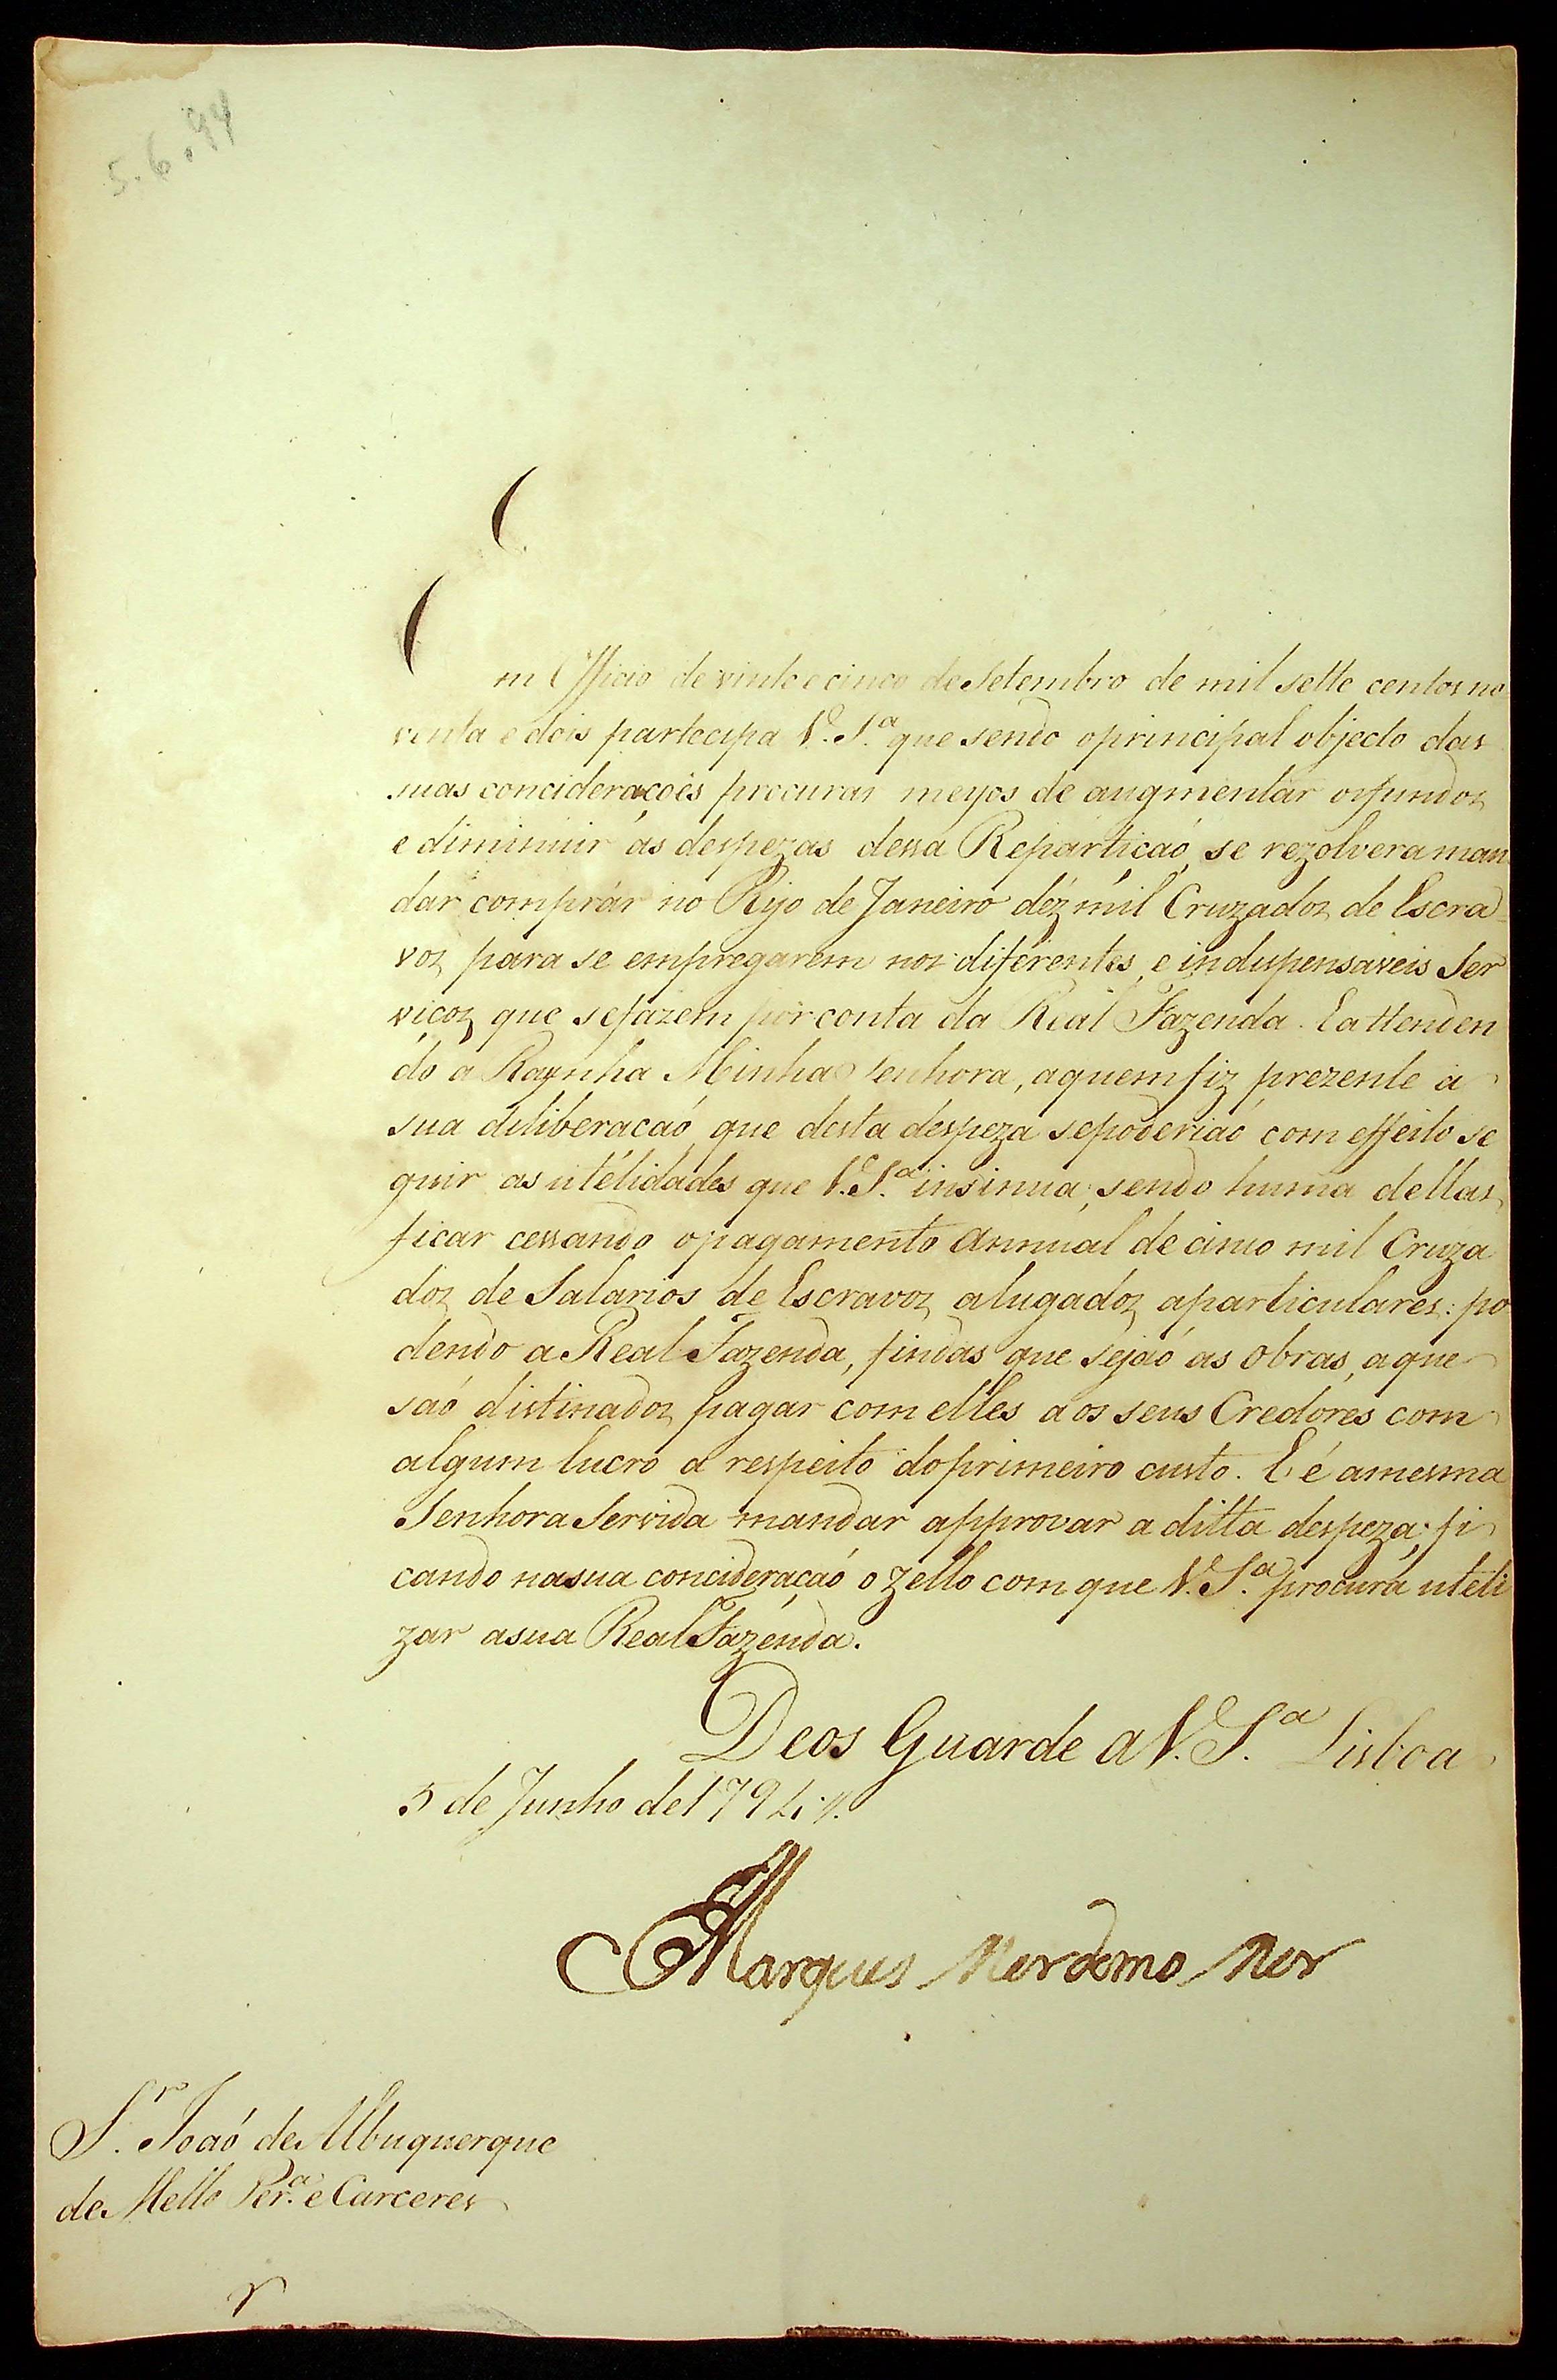 5.6.94
Em Officio de vinte e cinco de Setembro de mil sette centos no
venta e dois partecipa V. S.ª que sendo o principal objecto das
suas concideraçoẽs procurar meyos de augmentar os fundos
e diminuir as despezas dessa Repartiçaó, se rezolvera man
dar comprár no Rijo de Janeiro déz mil Cruzados de Escra=
vos para se empregarem nos diferentes, e indispensaveis Ser
viços que se fazem por conta da Real Fazenda. E attenden
do a Raynha Minha Senhora, a quem fiz prezente a
sua diliberacaó, que desta despeza se poderiaó com effeito se
guir as utelidades que V. S.ª insinua; sendo huma dellas
ficar cessando o pagamento Annual de cinco mil Cruza
dos de Salarios de Escravos alugados a particulares: po
dendo a Real Fazenda, findas que sejaó as obras, a que
saó distinados pagar com elles a os seus Credores com
algum lucro a respeito do primeiro custo. E é a mesma
Senhora Servida mandar approvar a ditta despeza; fi
cando na sua concideraçaó o zello com que V. S.ª procura uteli
zar a sua Real Fazenda.
Deos Guarde a V. S.ª Lisboa
5 de Junho de 1794
Marques Mordomo Mor
S.r Joaó de Albuquerque
de Mello Per.ª e Carceres